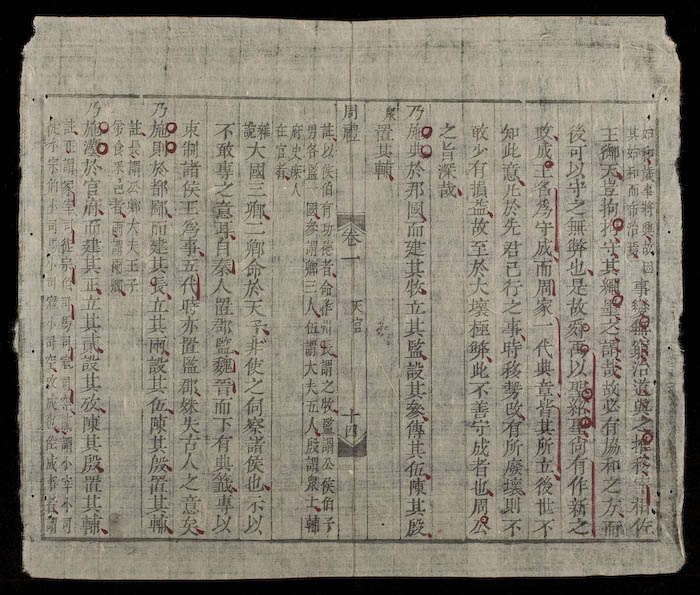 始和歲事將興故因
其始和而布治焉
事變無窮治道與之推移宰相佐
王御天豈拘拘守其繩墨之謂哉故必有協和之方而
後可以守之無弊也是故舜禹以聖繼聖尚有作新之
政成王名爲守成而周家一代典章皆其所立後世不
知此意凡於先君已行之事時移勢改有所廢壞則不
敢少有損益故至於大壞極弊此不善守成者也周公
之旨深哉
乃施典於邦國而建其牧立其監設其參傅其伍陳其殷
置其輔
註以侯伯有功德者命作州長謂之牧監謂公侯伯子
男各監一國參謂卿三人伍謂大夫五人殷謂衆士輔
府史庶人
在官者
周禮 卷一 天官 十四
大國三卿二卿命於天子非使之伺察諸侯也示以
不敢專之意耳自秦人置郡監魏晉而下有典籤專以
束制諸侯王爲事五代時亦置監郡殊失古人之意矣
乃施則於都鄙而建其長立其兩設其伍陳其殷置其輔
註長謂公卿大夫王子
弟食采邑者兩謂兩卿
乃施灋於官府而建其正立其貳設其攷陳其殷置其輔
註正謂冢宰司徒宗伯司馬司寇司空貳謂小宰小司
徒小宗伯小司馬小司寇小司空攷成也佐成事者謂